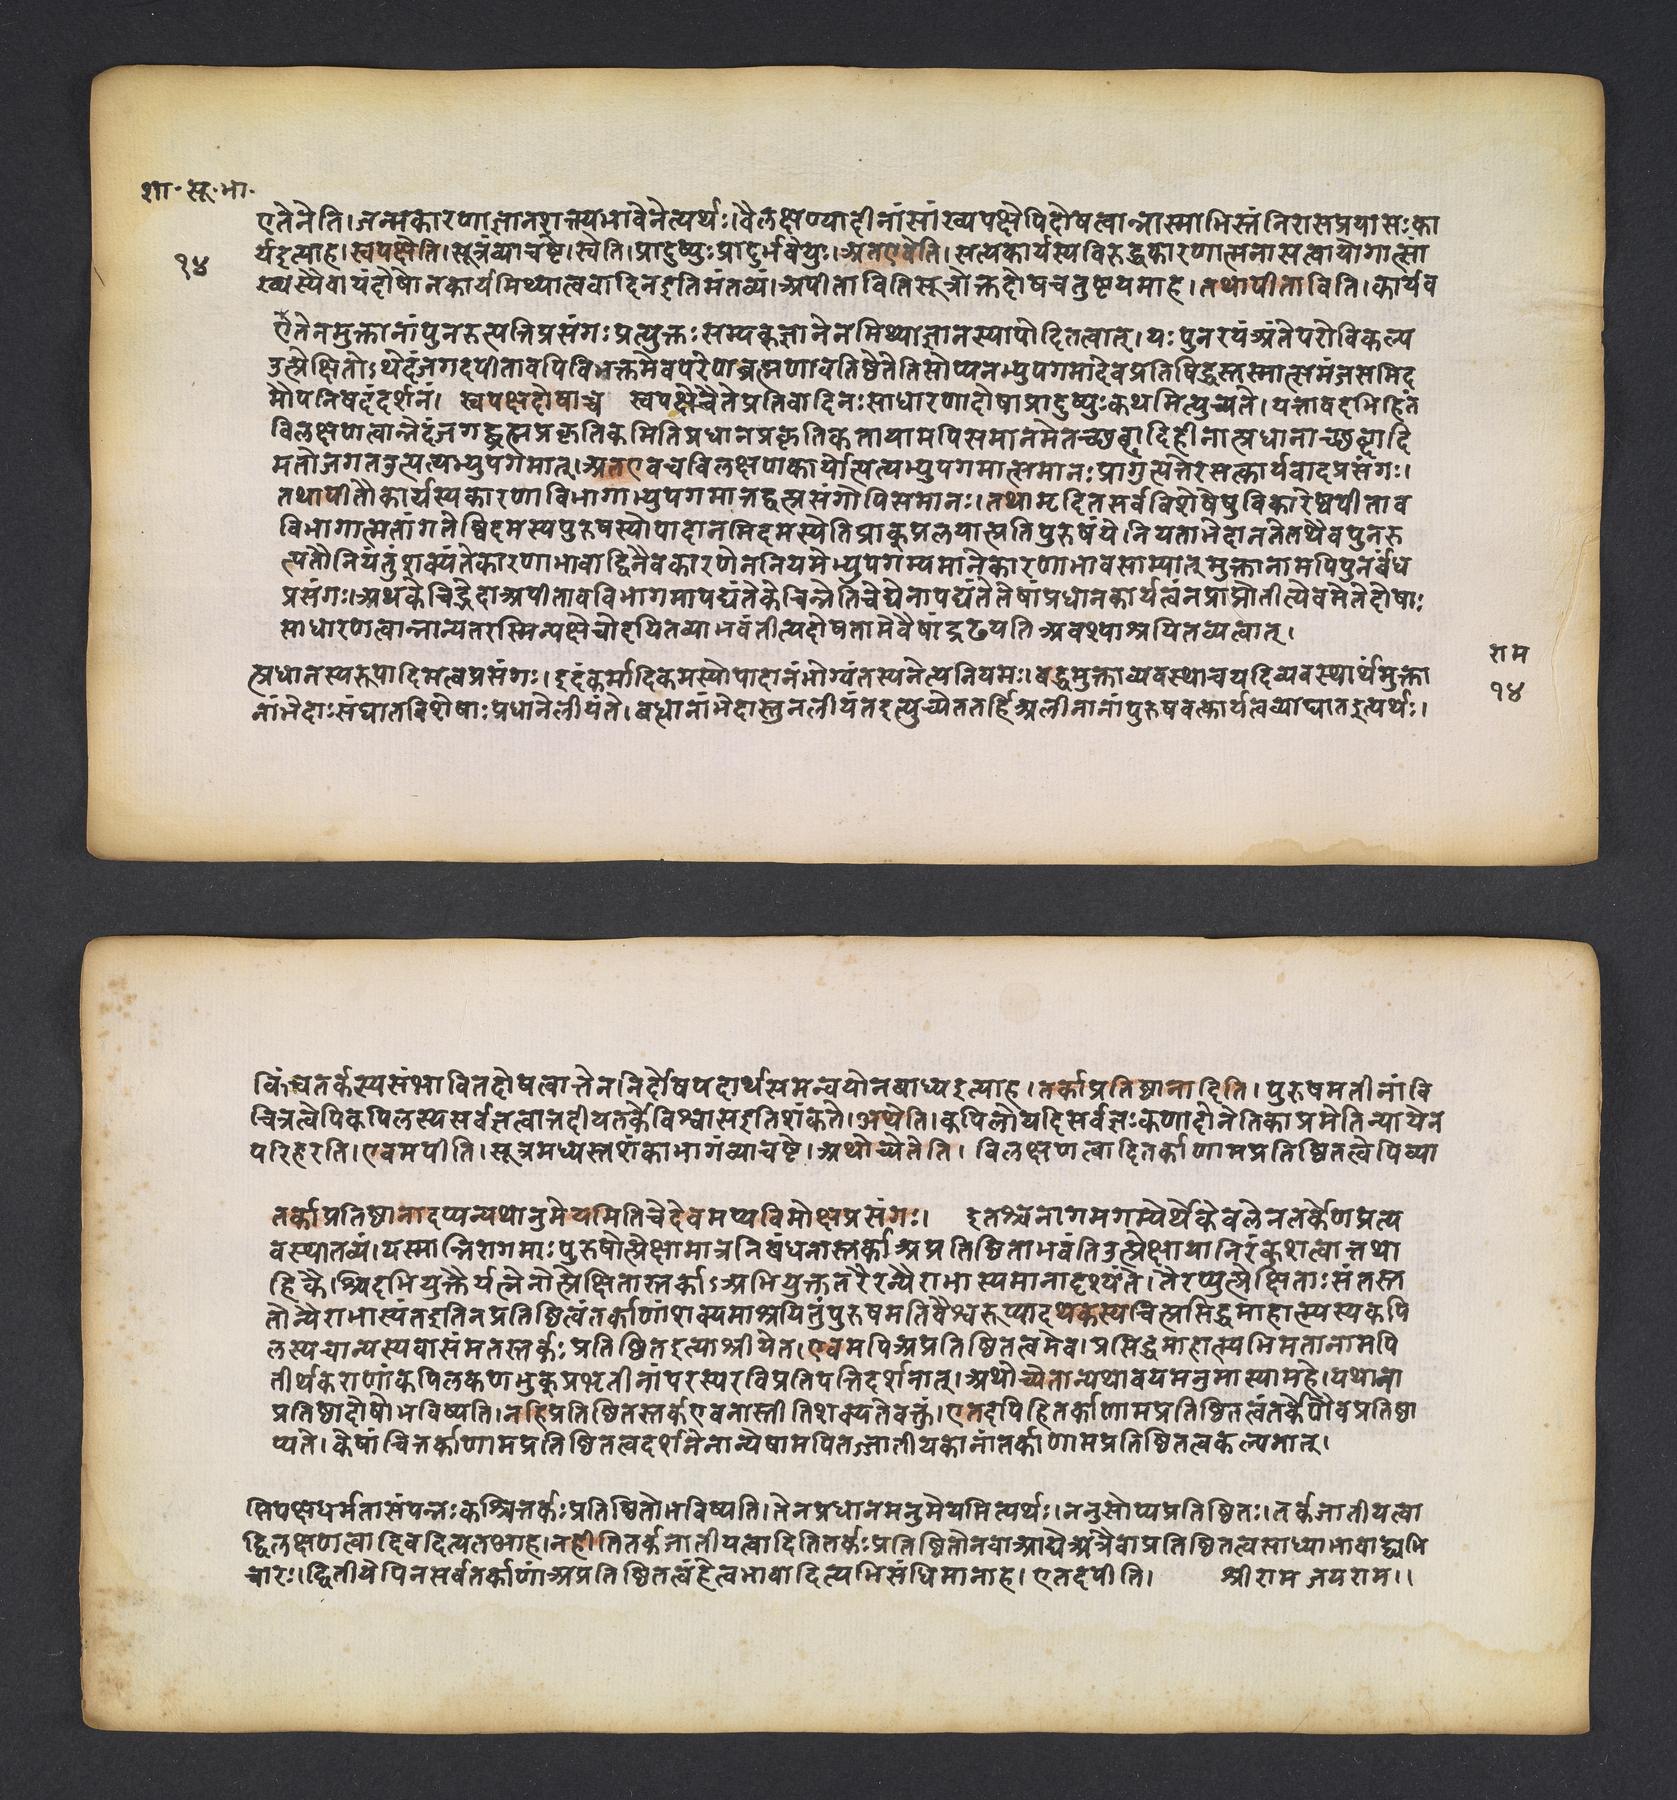 शा॰ सू॰ भा॰
१४
एतेनेति।जन्मकारणाज्ञानशक्त्यभावेनेत्यर्थः।वैलक्षण्यादीनांसांख्यपक्षेपिदोषत्वान्नास्माभिस्तंनिरासप्रयासःका
र्यइत्याह।स्वपक्षेति।सूत्रंव्याचष्टे।स्वेति।प्रादुष्युःप्रादुर्भवेयुः।अतएवेति।सत्यकार्यस्यविरुद्धकारणात्मनासत्वायोगात्सा
ख्यस्यैवायंदोषोनकार्यमिथ्यात्ववादिनइतिमंतव्यं।अपीतावितिसूत्रोक्तदोषचतुष्टयमाह।तथापीताविति।कार्यव
एतेनमुक्तानांपुनरुत्पत्तिप्रसंगःप्रत्युक्तःसम्यक्ज्ञानेनमिथ्याज्ञानस्यापोदितत्वात्।यःपुनरयंअंतेपरोविकल्प
उत्प्रेक्षितोऽथेदंजगदपीतावपिविभक्तमेवपरेणब्रह्मणावतिष्ठेतेतिसोप्यनभ्युपगमादेवप्रतिषिद्धस्तस्मात्समंजसमिद
मौपनिषदंदर्शनं। स्वपक्षदोषाच्च स्वपक्षेचैतेप्रतिवादिनःसाधारणादोषाप्रादुष्युःकथमित्युच्यते।यत्तावदभिहितं
विलक्षणत्वान्नेदंजगद्ब्रह्मप्रकृतिकमितिप्रधानप्रकृतिकतायामपिसमानमेतच्छब्दादिहीनात्प्रधानाच्छब्दादि
मतोजगतउत्पत्यभ्युपगमात्।अतएवचविलक्षणकार्योत्पत्यभ्युपगमात्समानःप्रागुत्पत्तेरसत्कार्यवादप्रसंगः।
तथापीतौकार्यस्यकारणाविभागाभ्युपगमात्तद्वत्प्रसंगोपिसमानः।तथामृदितसर्वविशेषेषुविकारेष्वपीताव
विभागात्मतांगतेष्विदमस्यपुरुषस्योपादानमिदमस्येतिप्राक्प्रलयात्प्रतिपुरुषंये।नियताभेदानतेतथैवपुनरु
त्पत्तौनियंतुंशक्यंतेकारणाभावाद्विनैवकारणेननियमेभ्युपगम्यमानेकारणाभावसाम्यात्मुक्तानामपिपुनर्बंध
प्रसंगः।अथकेचिद्भेदाअपीतावविभागमापद्यंतेकेचिन्नेतिचेद्येनापद्यंतेतेषांप्रधानकार्यत्वंनप्राप्नोतीत्येवमेतेदोषाः
साधारणत्वान्नान्यतरस्मिन्पक्षेचोदयितव्याभवंतीत्यदोषतामेवैषांद्रढयति अवश्याश्रयितव्यत्वात्।
त्प्रधानस्यरूपादिमत्वप्रसंगः।इदंकर्मादिकमस्योपादानंभोग्यंतस्यनेत्यनियमः।बद्धमुक्ताव्यवस्थाचयदिव्यवस्थार्थंमुक्ता
नांभेदाःसंघातविशेषाःप्रधानेलीयंते।बद्धानांभेदास्तुनलीयंतइत्युच्येततर्हिअलीनानांपुरुषवत्कार्यत्वव्याघातइत्यर्थः।
राम
१४
किंचतर्कस्यसंभावितदोषत्वात्तेन।निर्दोषपदार्थसमन्वयोनबाध्यइत्याह।तर्काप्रतिष्ठानादिति।पुरुषमतीनांवि
चित्रत्वेपिकपिलस्यसर्वज्ञत्वात्तदीयतर्केविश्वासइतिशंकते।अथेति।कपिलोयदिसर्वज्ञःकणादोनेतिकाप्रमेतिन्यायेन
परिहरति।एवमपीति।सूत्रमध्यस्तशंकाभागंव्याचष्टे।अथोच्येतेति।विलक्षणत्वादितर्काणामप्रतिष्ठितत्वेपिव्या
तर्काप्रतिष्ठानादप्यन्यथानुमेयमितिचेदेवमप्यविमोक्षप्रसंगः। इतश्चनागमगम्येर्थेकेवलेनतर्केणप्रत्य
वस्थातव्यं।यस्मान्निरागमाःपुरुषोत्प्रेक्षामात्रनिबंधनास्तर्काअप्रतिष्ठिताभवंतिउत्प्रेक्षायानिरंकुशत्वात्तथा
हिकै।श्चिदभियुक्तैर्यत्नेनोत्प्रेक्षितास्तर्काऽअभियुक्ततरैरन्यैराभास्यमानादृश्यंते।तैरप्युत्प्रेक्षिताःसंतस्त
तोन्यैराभास्यंतइतिनप्रतिष्ठितत्वंतर्काणांशक्यमाश्रयितुंपुरुषमतिवैश्वरूप्यादथकस्यचित्प्रसिद्धमाहात्म्यस्यकपि
लस्यचान्यस्यवासंमतस्तर्कःप्रतिष्ठितइत्याश्रीयेत।एवमपिअप्रतिष्ठितत्वमेव।प्रसिद्धमाहात्म्यभिमतानामपि
तीर्थकराणांकपिलकणभुक्प्रभृतीनांपरस्परविप्रतिपत्तिदर्शनात्।अथोच्येतान्यथावयमनुमास्यामहे।यथाना
प्रतिष्ठादोषोभविष्यति।नहिप्रतिष्ठितस्तर्कएवनास्तीतिशक्यतेवक्तुं।एतदपिहितर्काणामप्रतिष्ठितत्वंतर्केणैवप्रतिष्ठा
प्यते।केषांचित्तर्काणामप्रतिष्ठितत्वदर्शनेनान्येषामपितज्जातीयकानांतर्काणामप्रतिष्ठितत्वकल्पनात्।
प्तिपक्षधर्मतासंपन्नःकश्चित्तर्कःप्रतिष्ठितोभविष्यति।तेनप्रधानमनुमेयमित्यर्थः।ननुसोप्यप्रतिष्ठितः।तर्कजातीयत्वा
द्विलक्षणत्वादिवदित्यतआह।नहीतितर्कजातीयत्वादितितर्कःप्रतिष्ठितोनवाआद्येअत्रैवाप्रतिष्ठितत्वसाध्याभावाद्व्यभि
चारः।द्वितीयेपिनसर्वतर्काणांअप्रतिष्ठितत्वंहेत्वभावादित्यभिसंधिमानाह।एतदपीति। श्री राम जय राम।।